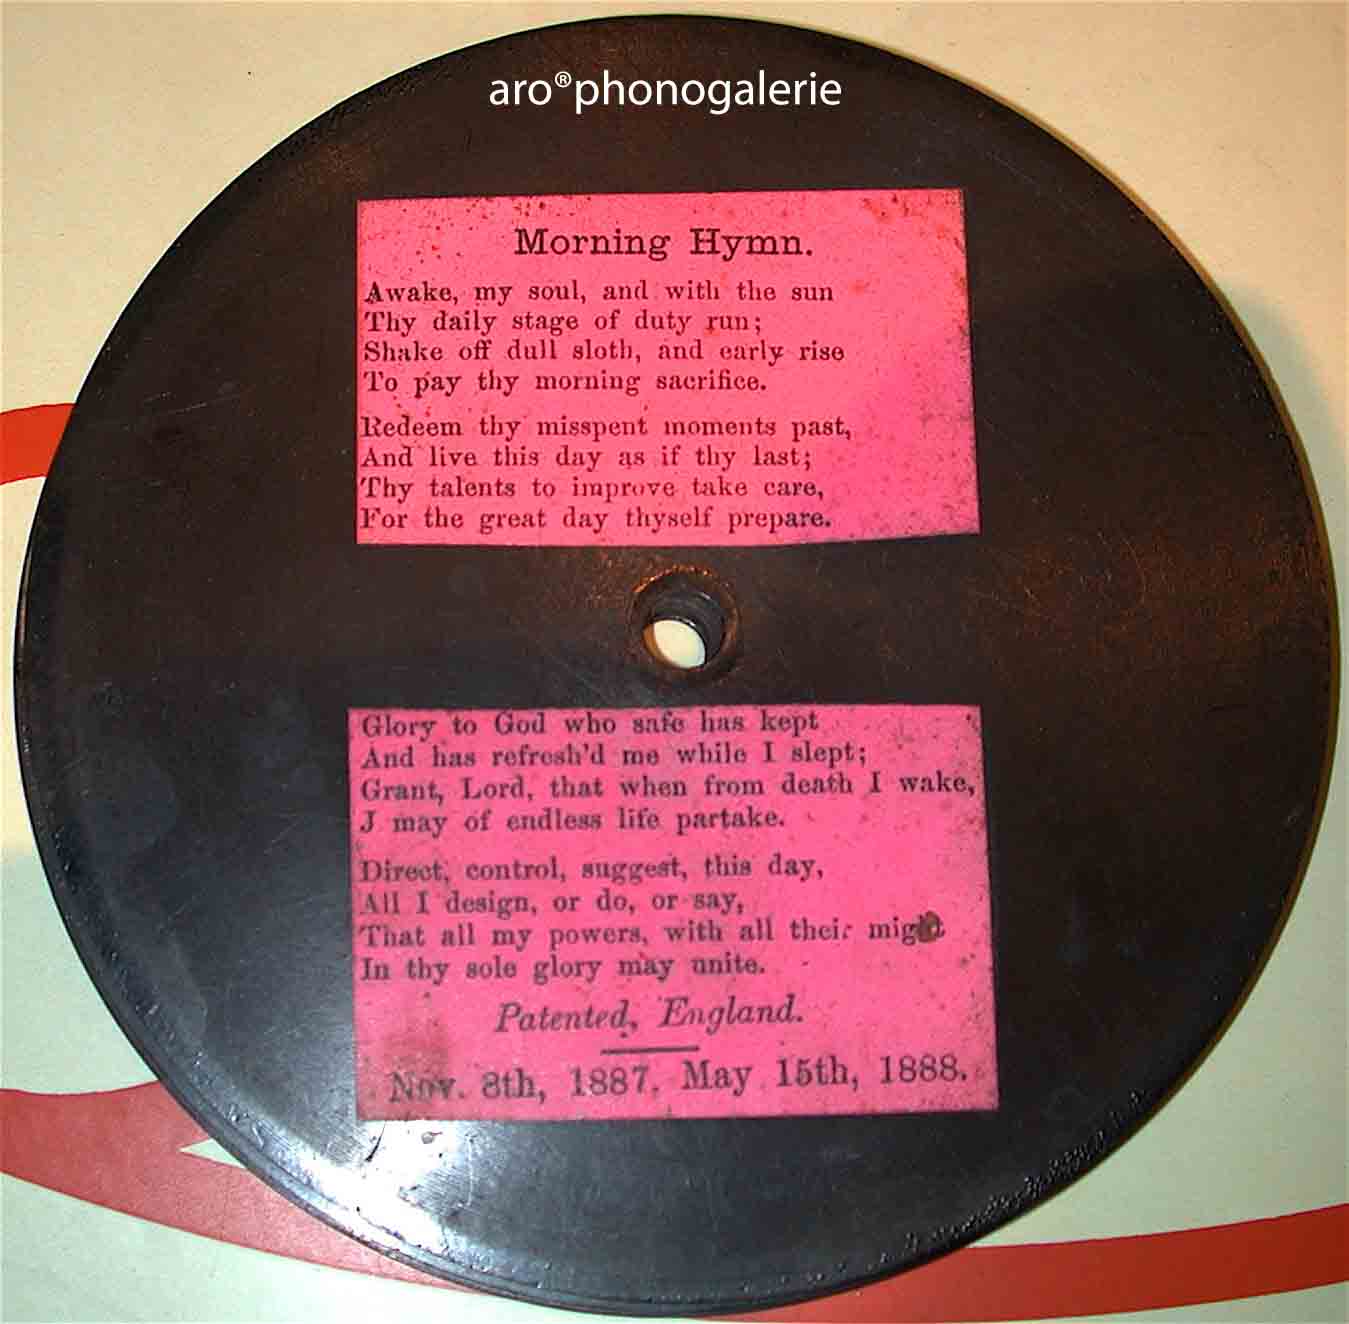 aro®phonogalerie
Morning Hymn.
Awake, my soul, and with the sun
Thy daily stage of duty run;
Shake off dull sloth, and early rise
To pay thy morning sacrifice.
Redeem thy misspent moments past,
And live this day as if thy last;
Thy talents to improve take care,
For the great day thyself prepare.
Glory to God who safe has kept
And has refresh'd me while I slept;
Grant, Lord, that when from death I wake,
J may of endless life partake.
Direct, control, suggest, this day,
All I design, or do, or say,
That all my powers, with all their might
In thy sole glory may unite.
Patented, England.
Nov. 8th, 1887. May 15th, 1888.